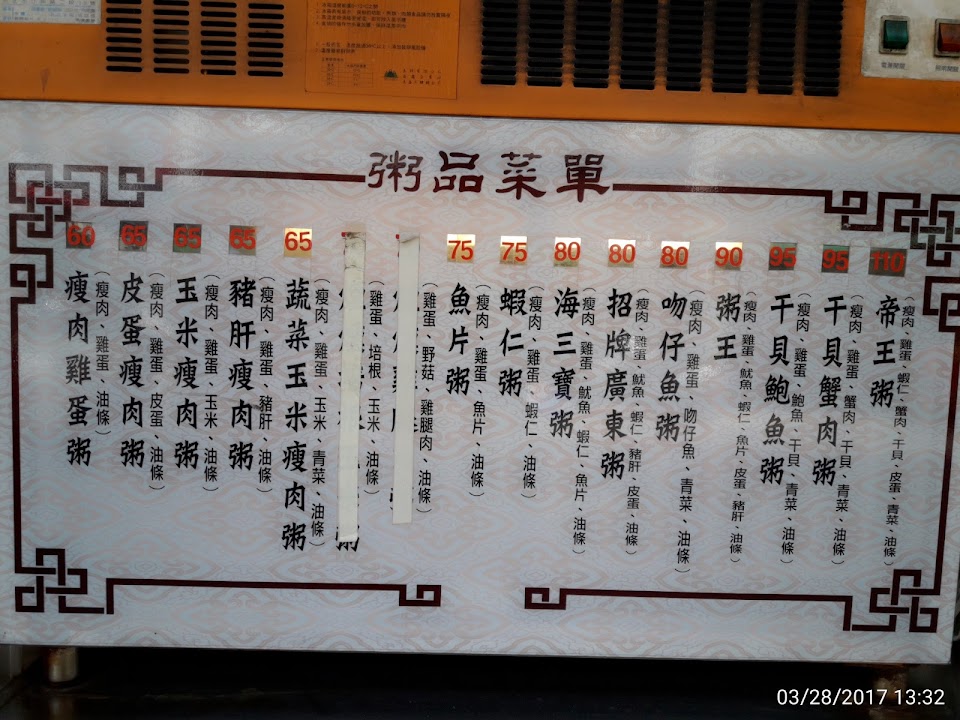 粥品菜單
110
帝王粥
(瘦肉、雞蛋、蝦仁、蟹肉、干貝、皮蛋、青菜、油條)
95
干貝蟹肉粥
(瘦肉、雞蛋、蟹肉、干貝、青菜、油條)
95
干貝鮑魚粥
(瘦肉、雞蛋、鮑魚、干貝、青菜、油條)
90
粥王
(瘦肉、雞蛋、魷魚、蝦仁、魚片、皮蛋、豬肝、油條)
80
吻仔魚粥
(瘦肉、雞蛋、吻仔魚、青菜、油條)
80
招牌廣東粥
(瘦肉、雞蛋、魷魚、蝦仁、豬肝、皮蛋、油條)
80
海三寶粥
(瘦肉、雞蛋、魷魚、蝦仁、魚片、油條)
75
蝦仁粥
(瘦肉、雞蛋、蝦仁、油條)
75
魚片粥
(瘦肉、雞蛋、魚片、油條)
(雞蛋、野菇、雞腿肉、油條)
粥
(雞蛋、培根、玉米、油條)
65
蔬菜玉米瘦肉粥
(瘦肉、雞蛋、玉米、青菜、油條)
65
豬肝瘦肉粥
(瘦肉、雞蛋、豬肝、油條)
65
玉米瘦肉粥
(瘦肉、雞蛋、玉米、油條)
65
皮蛋瘦肉粥
(瘦肉、雞蛋、皮蛋、油條)
60
瘦肉雞蛋粥
(瘦肉、雞蛋、油條)
03/28/2017 13:32